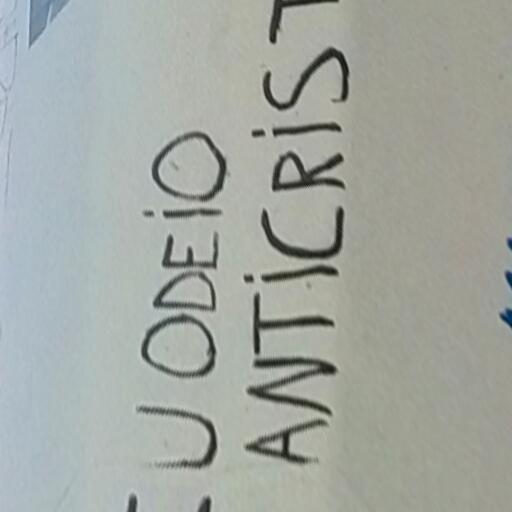 EU ODEiO
ANTiCRiST